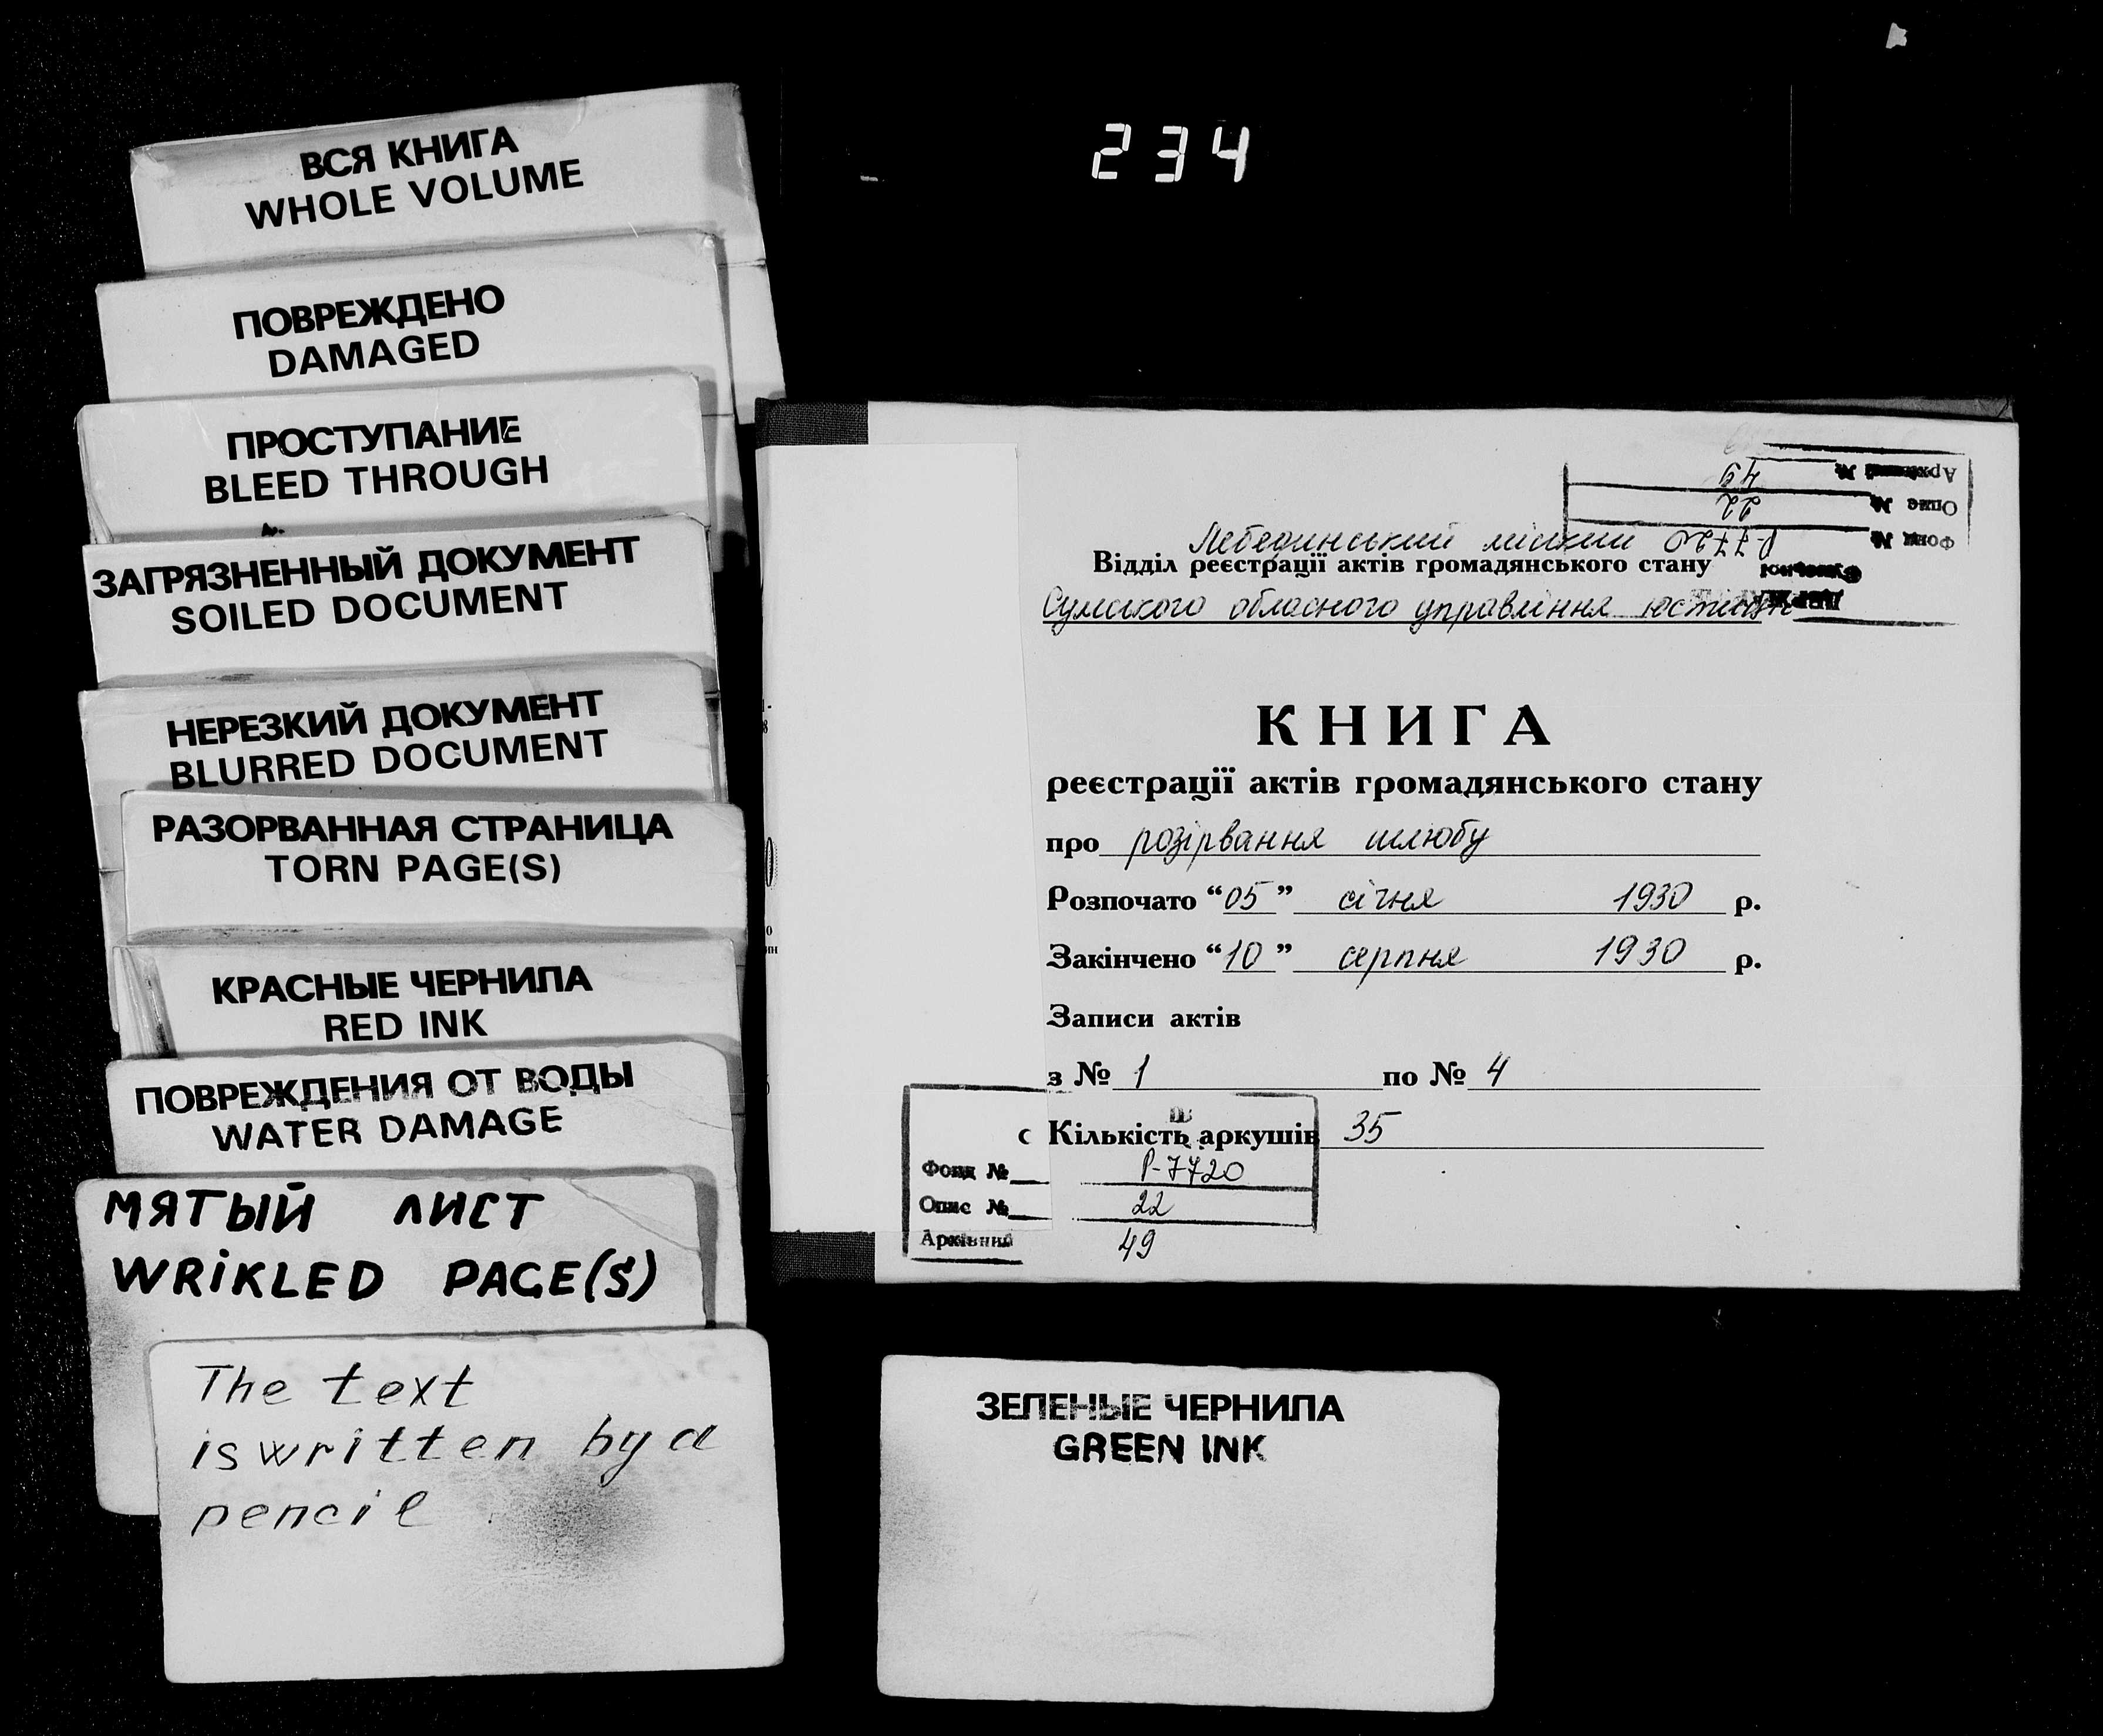 234
ВСЯ КНИГА
WHOLE VOLUME
ПОВРЕЖДЕНО
DAMAGED
ПРОСТУПАНИЕ
BLEED THROUGH
ЗАГРЯЗНЕННЫЙ ДОКУМЕНТ
SOILED DOCUMENT
НЕРЕЗКИЙ ДОКУМЕНТ
BLURRED DOCUMENT
РАЗОРВАННАЯ СТРАНИЦА
TORN PAGE(S)
КРАСНЫЕ ЧЕРНИЛА
RED INK
ПОВРЕЖДЕНИЯ ОТ ВОДЫ
WATER DAMAGE
МЯТЫЙ ЛИСТ
WRIKLED PAGE(S)
The text
is written by a
pencil
Архівний № 49
Опис № 22
Фонд № Р-7720
Лебединський міський
Відділ реєстрації актів громадянського стану
Сумського обласного управління юстиції
КНИГА
реєстрації актів громадянського стану
про розірвання шлюбу
Розпочато "05" січня 1930 р.
Закінчено "10" серпня 1930 р.
Записи актів
з № 1 по № 4
Кількість аркушів 35
Фонд № Р-7720
Опис № 22
Архівний 49
ЗЕЛЕНЫЕ ЧЕРНИЛА
GREEN INK